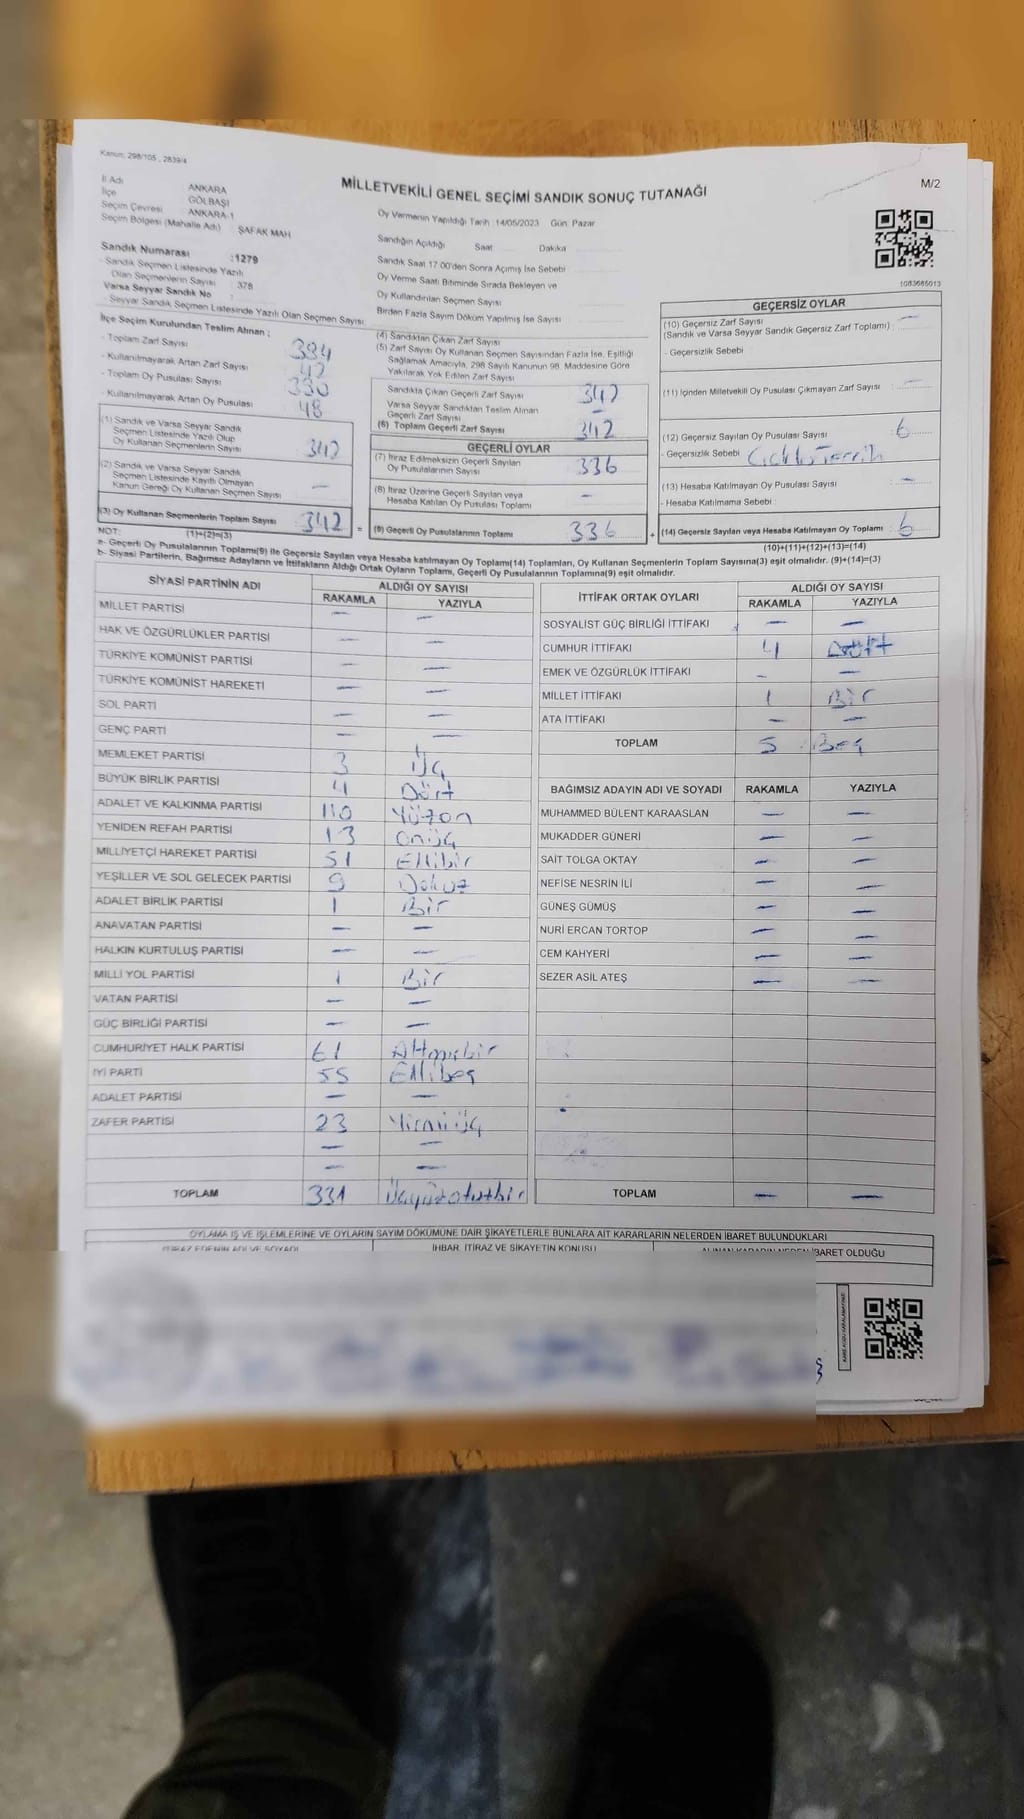 Kanun: 298/105 , 2839/4
MİLLETVEKİLİ GENEL SEÇİMİ SANDIK SONUÇ TUTANAĞI
M/2
İl Adı ANKARA
İlçe GÖLBAŞI
Seçim Çevresi ANKARA-1
Seçim Bölgesi (Mahalle Adı) : ŞAFAK MAH
Sandık Numarası :1279
- Sandık Seçmen Listesinde Yazılı
Olan Seçmenlerin Sayısı : 378
Varsa Seyyar Sandık No :
- Seyyar Sandık Seçmen Listesinde Yazılı Olan Seçmen Sayısı:
Oy Vermenin Yapıldığı Tarih :14/05/2023 Gün: Pazar
Sandığın Açıldığı Saat Dakika
Sandık Saat 17:00'den Sonra Açılmış İse Sebebi
Oy Verme Saati Bitiminde Sırada Bekleyen ve
Oy Kullandırılan Seçmen Sayısı
Birden Fazla Sayım Döküm Yapılmış İse Sayısı
1083685013
İlçe Seçim Kurulundan Teslim Alınan :
- Toplam Zarf Sayısı 384
- Kullanılmayarak Artan Zarf Sayısı 42
- Toplam Oy Pusulası Sayısı
- Kullanılmayarak Artan Oy Pusulası 48
(1) Sandık ve Varsa Seyyar Sandık
Seçmen Listesinde Yazılı Olup
Oy Kullanan Seçmenlerin Sayısı 342
(2) Sandık ve Varsa Seyyar Sandık
Seçmen Listesinde Kayıtlı Olmayan
Kanun Gereği Oy Kullanan Seçmen Sayısı —
(3) Oy Kullanan Seçmenlerin Toplam Sayısı 342 =
(1)+(2)=(3)
(4) Sandıktan Çıkan Zarf Sayısı
(5) Zarf Sayısı Oy Kullanan Seçmen Sayısından Fazla İse, Eşitliği
Sağlamak Amacıyla, 298 Sayılı Kanunun 98. Maddesine Göre
Yakılarak Yok Edilen Zarf Sayısı
Sandıkta Çıkan Geçerli Zarf Sayısı 342
Varsa Seyyar Sandıktan Teslim Alınan
Geçerli Zarf Sayısı —
(6) Toplam Geçerli Zarf Sayısı 342
GEÇERLİ OYLAR
(7) İtiraz Edilmeksizin Geçerli Sayılan
Oy Pusulalarının Sayısı 336
(8) İtiraz Üzerine Geçerli Sayılan veya
Hesaba Katılan Oy Pusulası Toplamı —
(9) Geçerli Oy Pusulalarının Toplamı 336 +
GEÇERSİZ OYLAR
(10) Geçersiz Zarf Sayısı
(Sandık ve Varsa Seyyar Sandık Geçersiz Zarf Toplamı) : —
- Geçersizlik Sebebi :
(11) İçinden Milletvekili Oy Pusulası Çıkmayan Zarf Sayısı : —
(12) Geçersiz Sayılan Oy Pusulası Sayısı : 6
- Geçersizlik Sebebi
(13) Hesaba Katılmayan Oy Pusulası Sayısı : —
- Hesaba Katılmama Sebebi :
(14) Geçersiz Sayılan veya Hesaba Katılmayan Oy Toplamı : 6
(10)+(11)+(12)+(13)=(14)
NOT:
a- Geçerli Oy Pusulalarının Toplamı(9) ile Geçersiz Sayılan veya Hesaba katılmayan Oy Toplamı(14) Toplamları, Oy Kullanan Seçmenlerin Toplam Sayısına(3) eşit olmalıdır. (9)+(14)=(3)
b- Siyasi Partilerin, Bağımsız Adayların ve İttifakların Aldığı Ortak Oyların Toplamı, Geçerli Oy Pusulalarının Toplamına(9) eşit olmalıdır.
SİYASİ PARTİNİN ADI ALDIĞI OY SAYISI
RAKAMLA YAZIYLA
MİLLET PARTİSİ — —
HAK VE ÖZGÜRLÜKLER PARTİSİ — —
TÜRKİYE KOMÜNİST PARTİSİ — —
TÜRKİYE KOMÜNİST HAREKETİ — —
SOL PARTİ — —
GENÇ PARTİ — —
MEMLEKET PARTİSİ 3 Üç
BÜYÜK BİRLİK PARTİSİ 4 Dört
ADALET VE KALKINMA PARTİSİ 110 Yüzon
YENİDEN REFAH PARTİSİ 13 Onüç
MİLLİYETÇİ HAREKET PARTİSİ 51 Ellibir
YEŞİLLER VE SOL GELECEK PARTİSİ 9 Dokuz
ADALET BİRLİK PARTİSİ 1 Bir
ANAVATAN PARTİSİ — —
HALKIN KURTULUŞ PARTİSİ — —
MİLLİ YOL PARTİSİ 1 Bir
VATAN PARTİSİ — —
GÜÇ BİRLİĞİ PARTİSİ — —
CUMHURİYET HALK PARTİSİ 61 Altmışbir
İYİ PARTİ 55 Ellibeş
ADALET PARTİSİ — —
ZAFER PARTİSİ 23 Yirmiüç
— —
— —
TOPLAM 331 Üçyüzotuzbir
İTTİFAK ORTAK OYLARI ALDIĞI OY SAYISI
RAKAMLA YAZIYLA
SOSYALİST GÜÇ BİRLİĞİ İTTİFAKI — —
CUMHUR İTTİFAKI 4 Dört
EMEK VE ÖZGÜRLÜK İTTİFAKI — —
MİLLET İTTİFAKI 1 Bir
ATA İTTİFAKI — —
TOPLAM 5 Beş
BAĞIMSIZ ADAYIN ADI VE SOYADI RAKAMLA YAZIYLA
MUHAMMED BÜLENT KARAASLAN — —
MUKADDER GÜNERİ — —
SAİT TOLGA OKTAY — —
NEFİSE NESRİN İLİ — —
GÜNEŞ GÜMÜŞ — —
NURİ ERCAN TORTOP — —
CEM KAHYERİ — —
SEZER ASİL ATEŞ — —
TOPLAM — —
OYLAMA İŞ VE İŞLEMLERİNE VE OYLARIN SAYIM DÖKÜMÜNE DAİR ŞİKAYETLERLE BUNLARA AİT KARARLARIN NELERDEN İBARET BULUNDUKLARI
İTİRAZ EDENİN ADI VE SOYADI İHBAR, İTİRAZ VE ŞİKAYETİN KONUSU ALINAN KARARIN NEDEN İBARET OLDUĞU